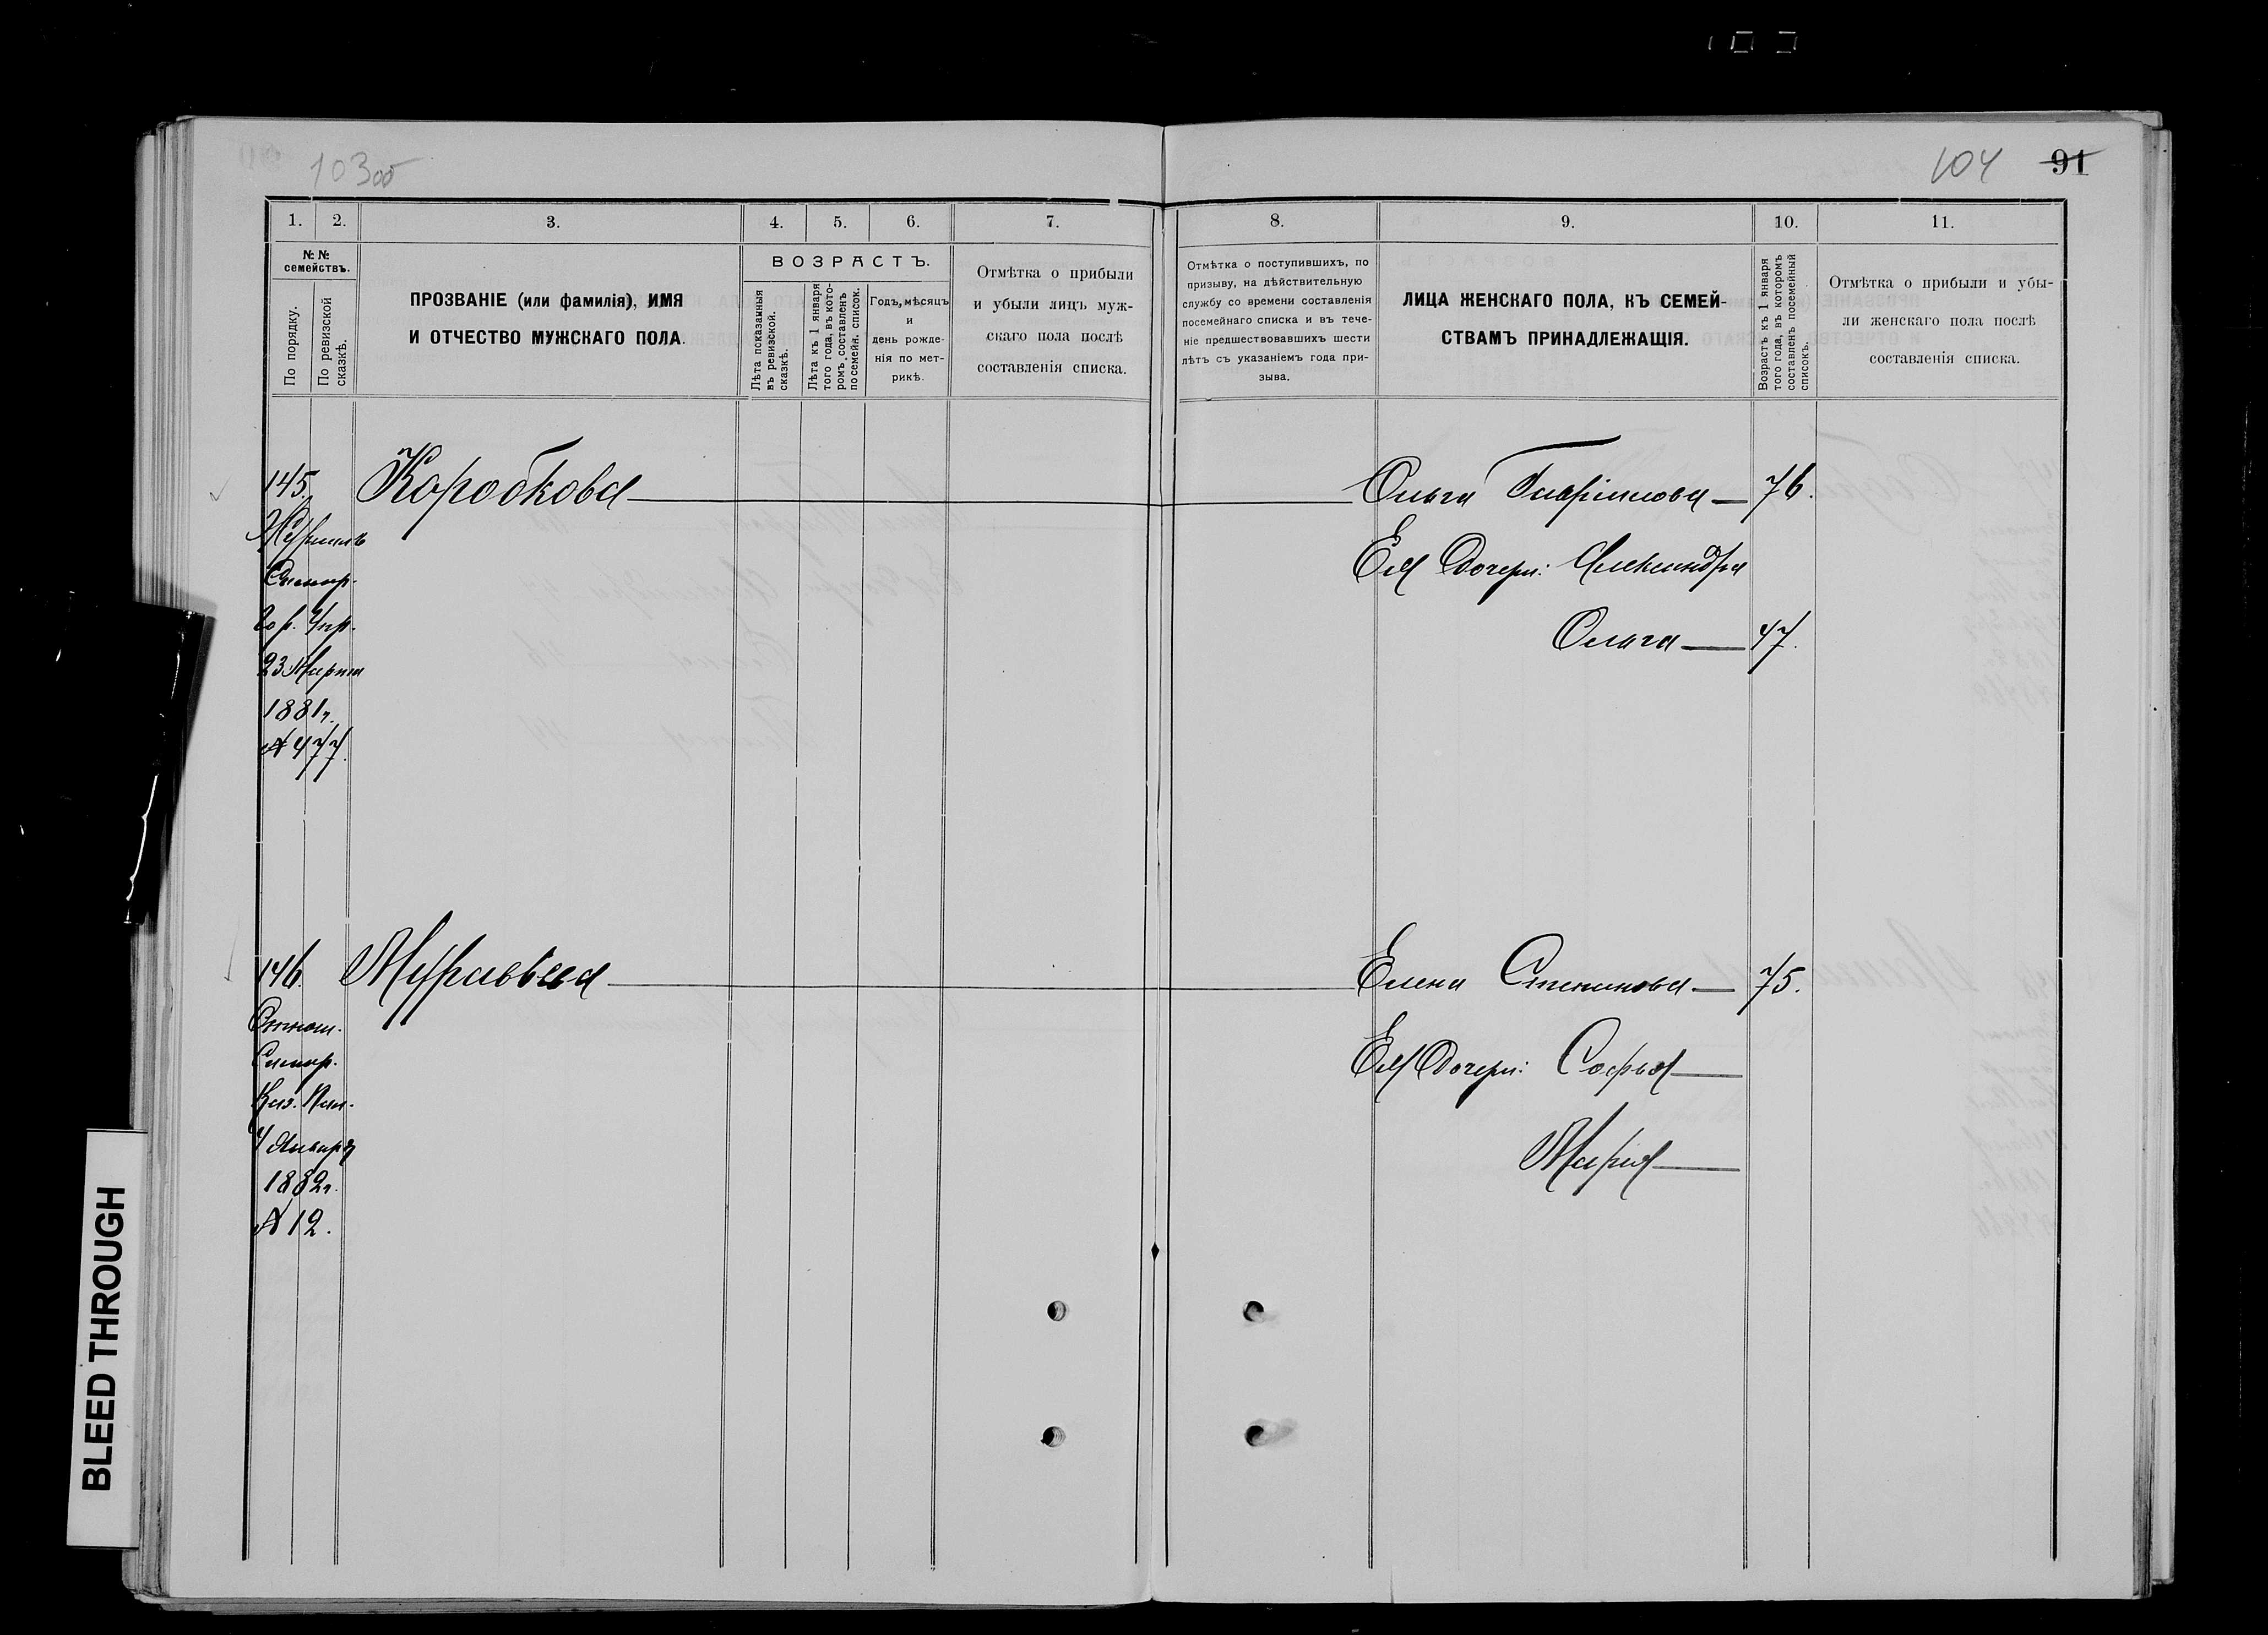 103об
104 91
1. 2. 3. 4. 5. 6. 7. 8. 9. 10. 11.
№ №
семействъ.
По порядку.
По ревизской
сказкѣ.
ПРОЗВАНІЕ (или фамилія), ИМЯ
И ОТЧЕСТВО МУЖСКАГО ПОЛА.
ВОЗРАСТЪ.
Лѣта показанныя
въ ревизской.
сказкѣ.
Лѣта къ 1 января
того года, въ кото-
ромъ, составленъ
посемейн. список.
Годъ, мѣсяцъ
и
день рожде-
нія по мет-
рикѣ.
Отмѣтка о прибыли
и убыли лицъ муж-
скаго пола послѣ
составленія списка.
Отмѣтка о поступившихъ, по
призыву, на дѣйствительную
службу со времени составленія
посемейнаго списка и въ тече-
ніе предшествовавшихъ шести
лѣтъ съ указаніемъ года при-
зыва.
ЛИЦА ЖЕНСКАГО ПОЛА, КЪ СЕМЕЙ-
СТВАМЪ ПРИНАДЛЕЖАЩІЯ.
Возрастъ къ 1 января
того года, въ которомъ
составленъ посемейный
списокъ.
Отмѣтка о прибыли и убы-
ли женскаго пола послѣ
составленія списка.
145. Коробкова Ольга Гаврилова 76.
Журналъ Ея дочери: Александра
Симир. Ольга 47.
Гор. Упр.
23 Марта
1881 г.
№ 477.
146. Муравьева Елена Степанова 75.
Отнош. Ея дочери: Софья
Симир. Марія
Каз. Пал.
4 Января
1882 г.
№ 12.
BLEED THROUGH